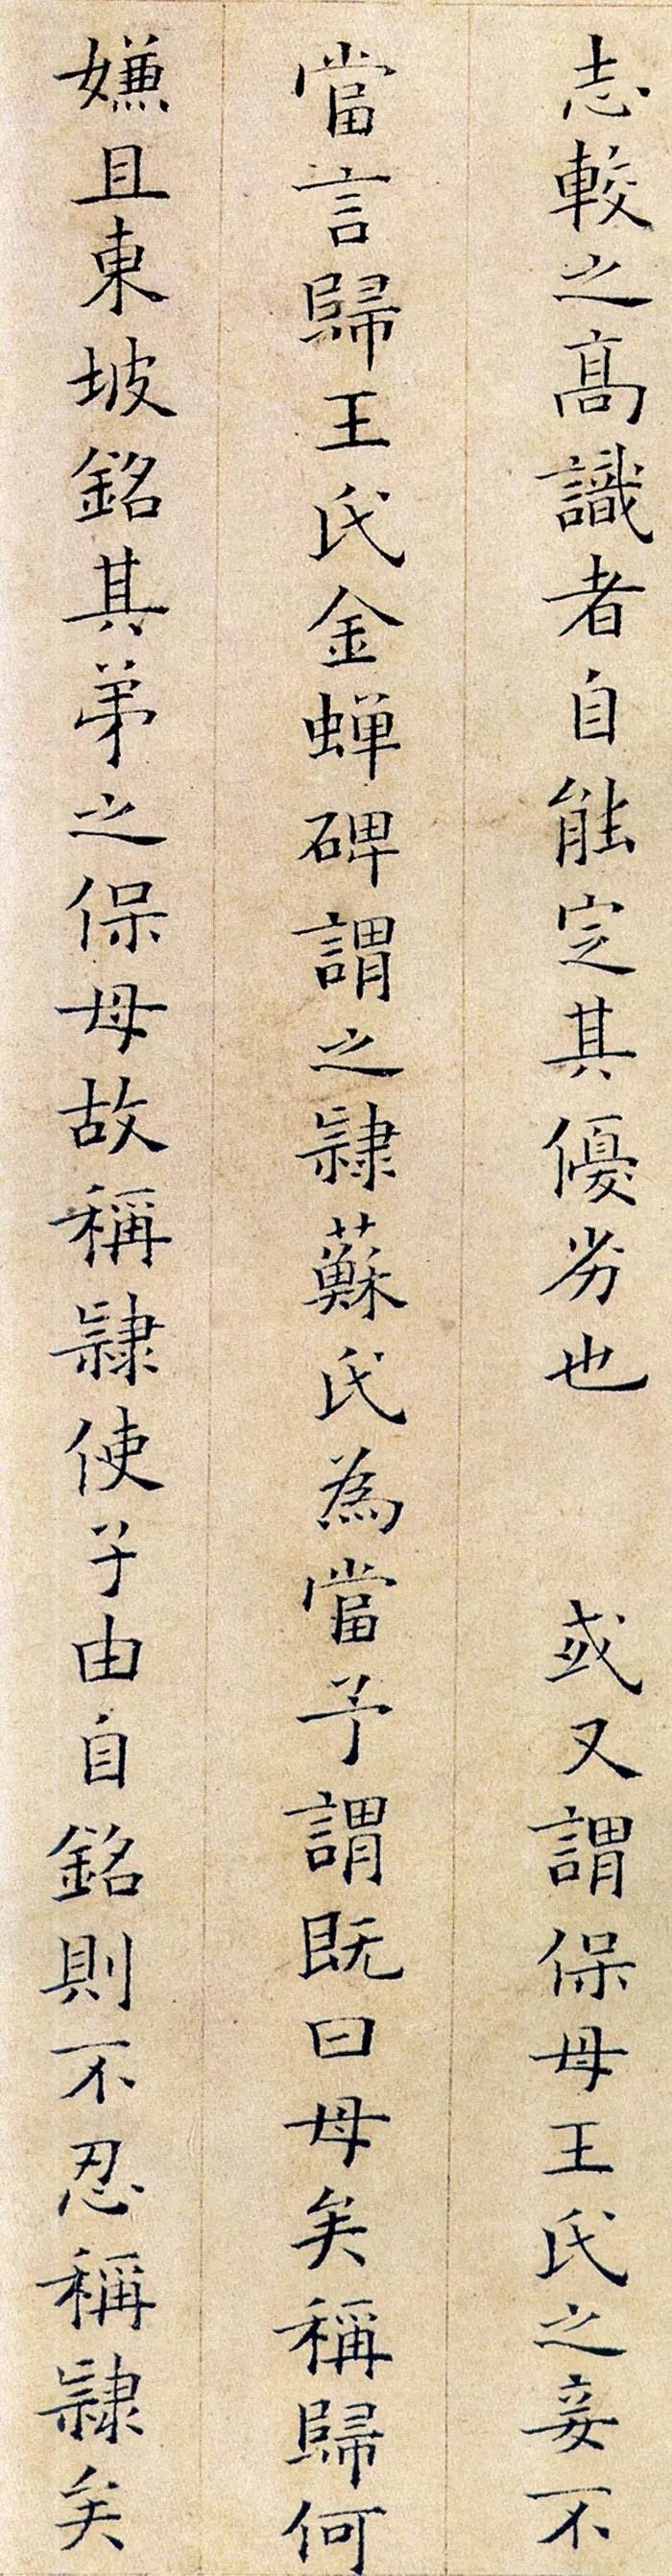 志較之高識者自能定其優劣也 或又謂保母王氏之妾不
當言歸王氏金蟬碑謂之隸蘇氏為當予謂既曰母矣稱歸何
嫌且東坡銘其弟之保母故稱隸使子由自銘則不忍稱隸矣